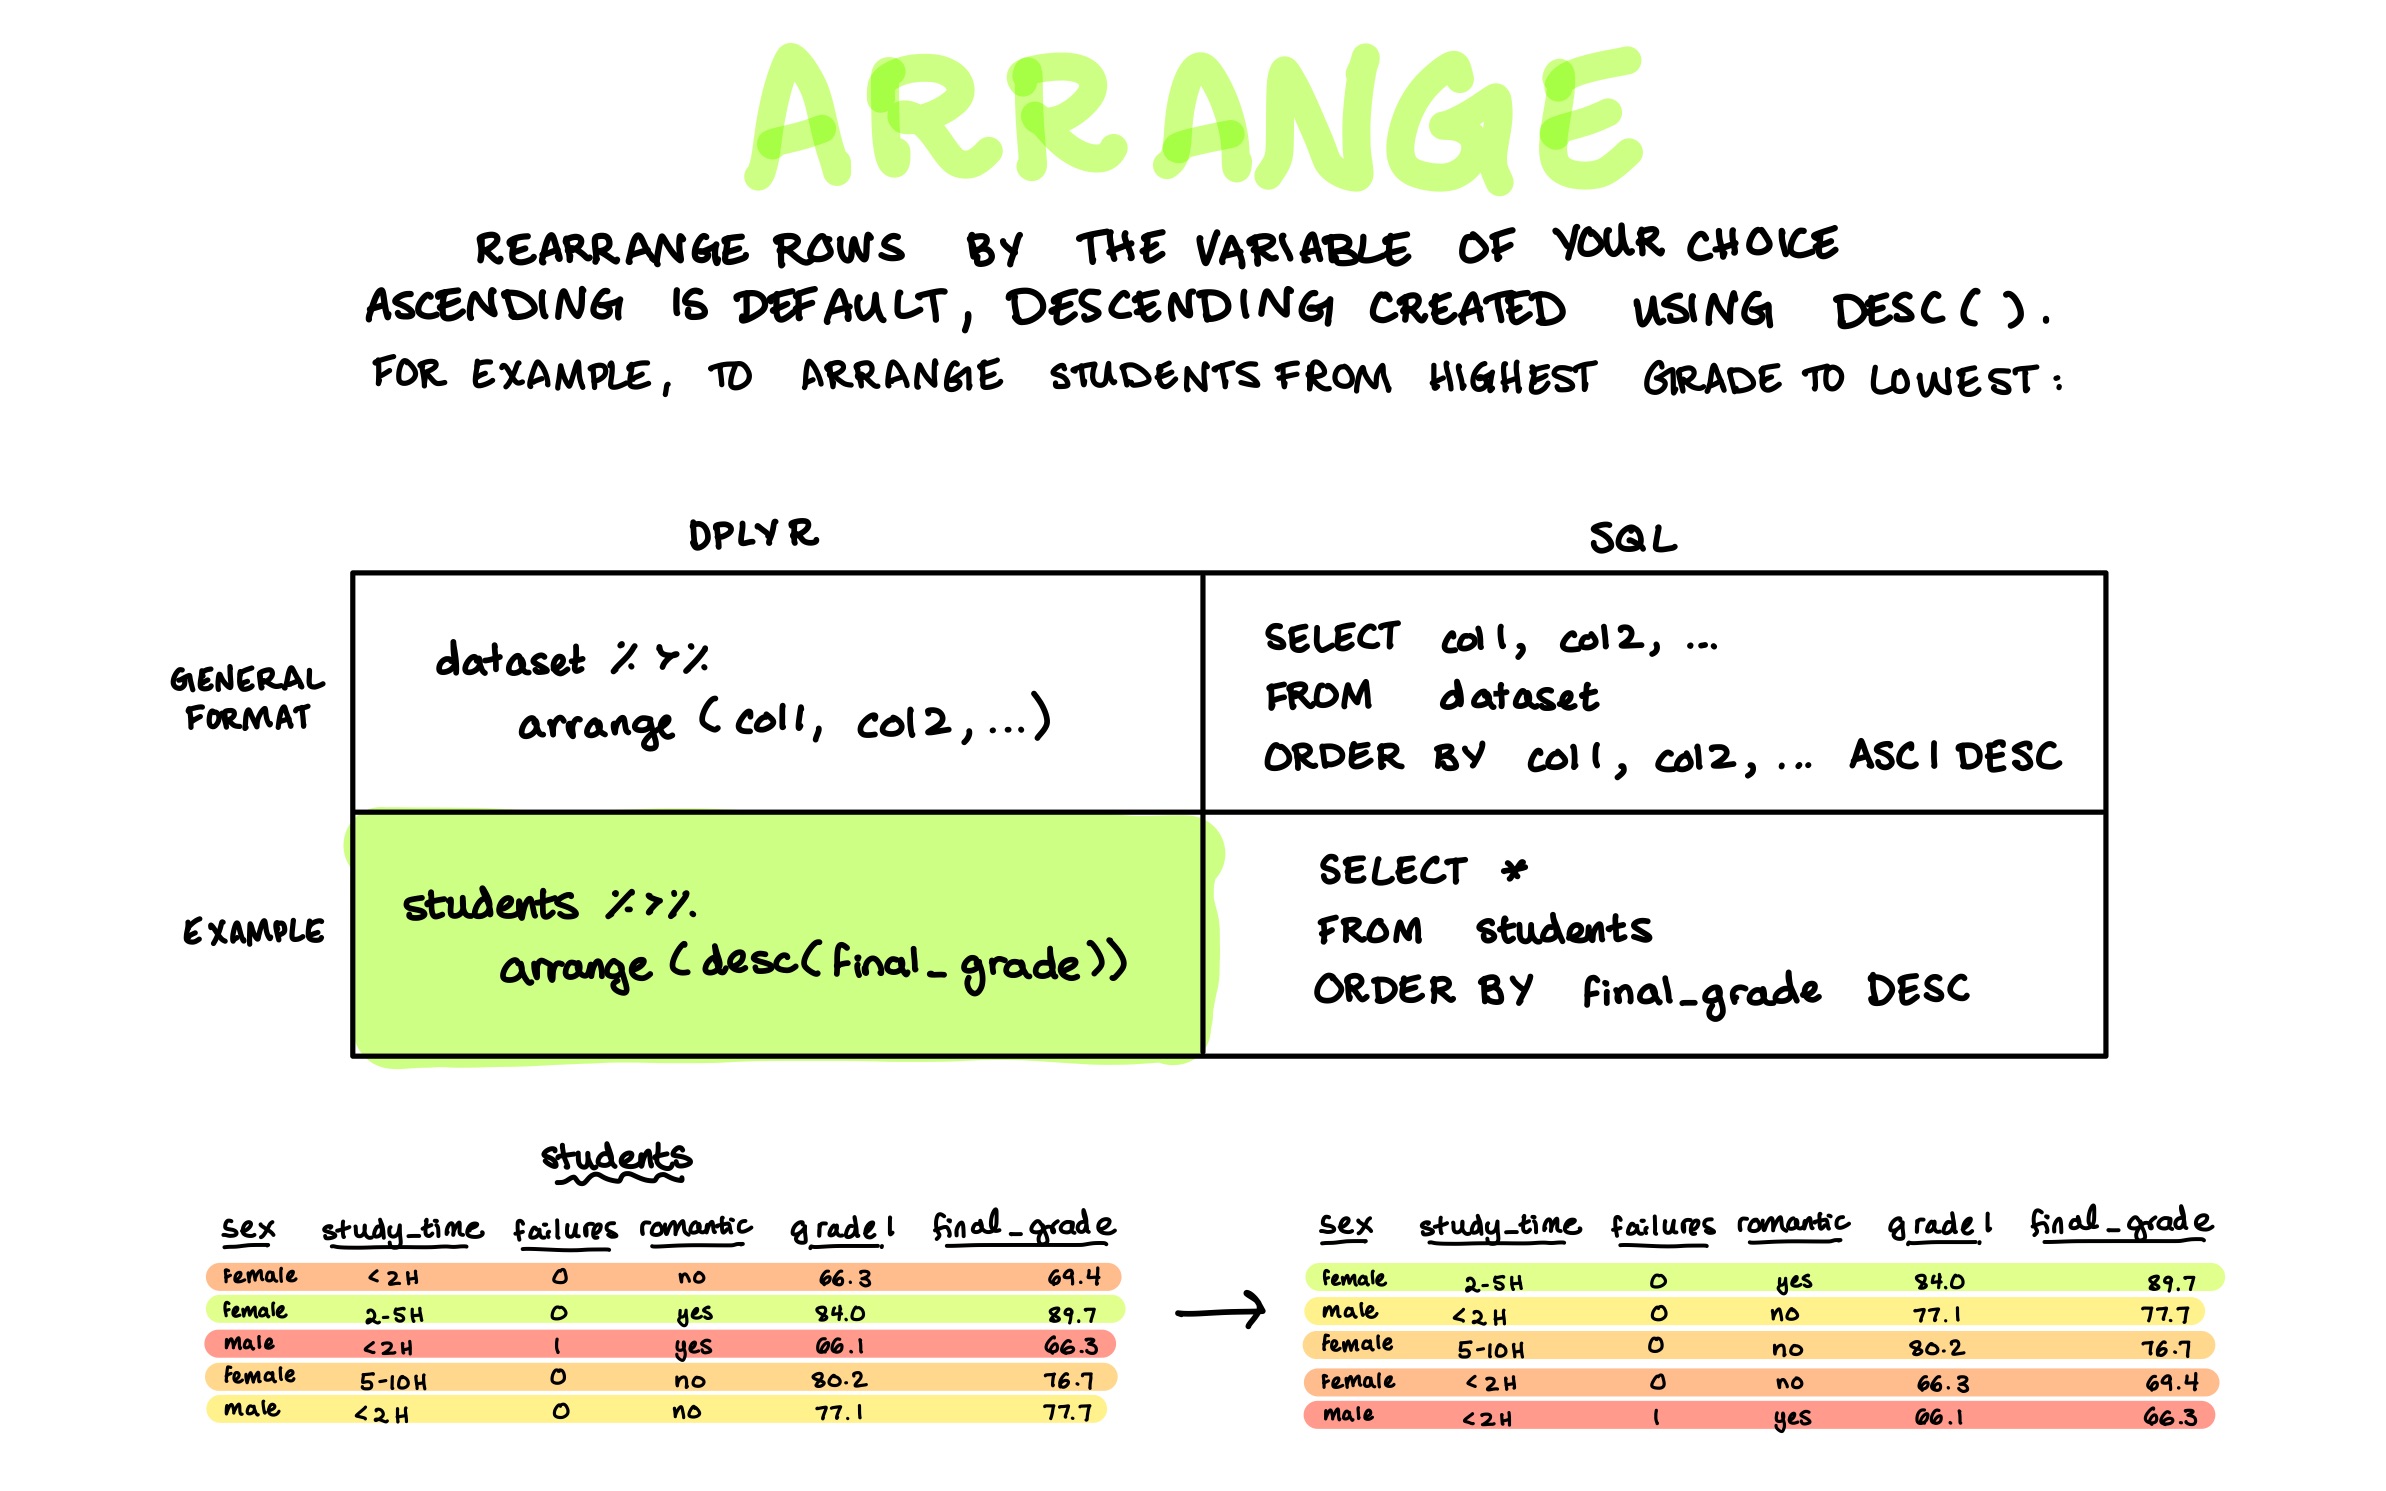 ARRANGE
REARRANGE ROWS BY THE VARIABLE OF YOUR CHOICE
ASCENDING IS DEFAULT, DESCENDING CREATED USING DESC().
FOR EXAMPLE, TO ARRANGE STUDENTS FROM HIGHEST GRADE TO LOWEST:
DPLYR SQL
GENERAL
FORMAT
dataset %>%
arrange (col1, col2, ...)
SELECT col1, col2, ...
FROM dataset
ORDER BY col1, col2, ... ASC | DESC
EXAMPLE
students %>%
arrange (desc(final_grade))
SELECT *
FROM students
ORDER BY final_grade DESC
students
sex study_time failures romantic grade1 final_grade
female <2H 0 no 66.3 69.4
female 2-5H 0 yes 84.0 89.7
male <2H 1 yes 66.1 66.3
female 5-10H 0 no 80.2 76.7
male <2H 0 no 77.1 77.7
sex study_time failures romantic grade1 final_grade
female 2-5H 0 yes 84.0 89.7
male <2H 0 no 77.1 77.7
female 5-10H 0 no 80.2 76.7
female <2H 0 no 66.3 69.4
male <2H 1 yes 66.1 66.3